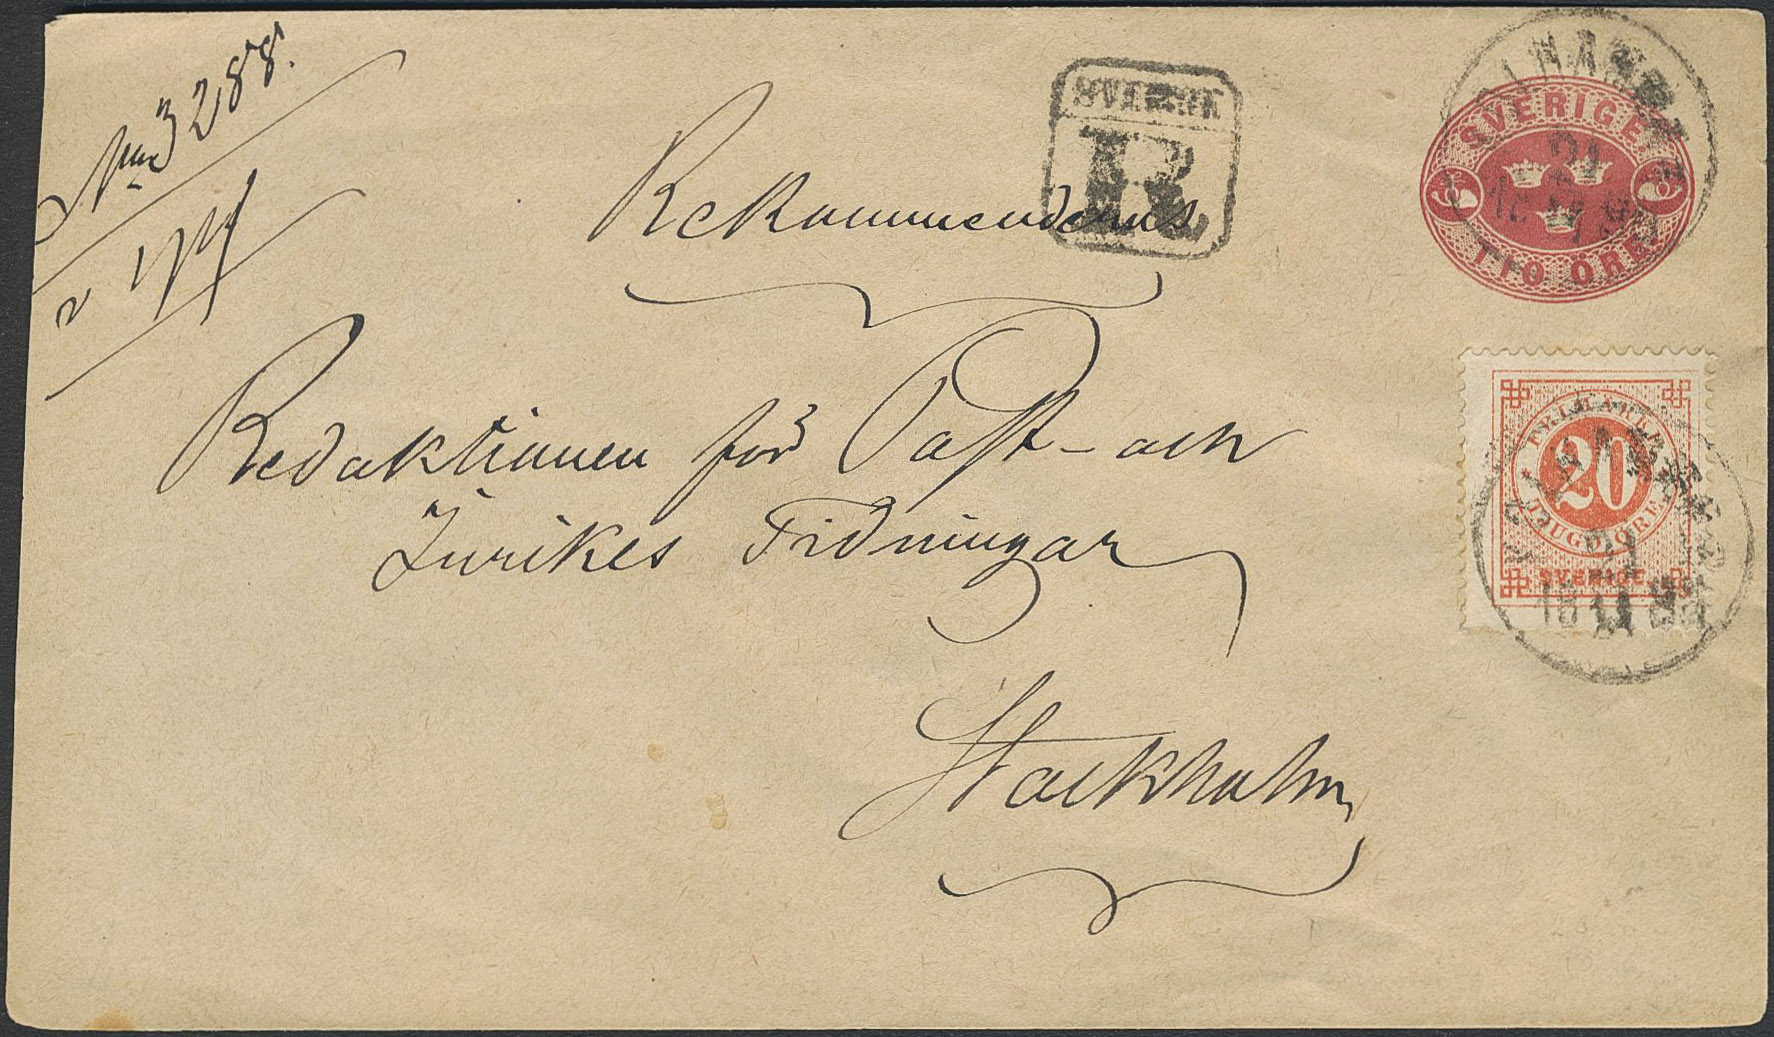 No 3288.
Rekommenderas
Redaktionen för Post- och
Inrikes Tidningar
Stockholm
R
SVERIGE.
TIO ÖRE.
FRIMÄRKE
20
TJUGO ÖRE
SVERIGE